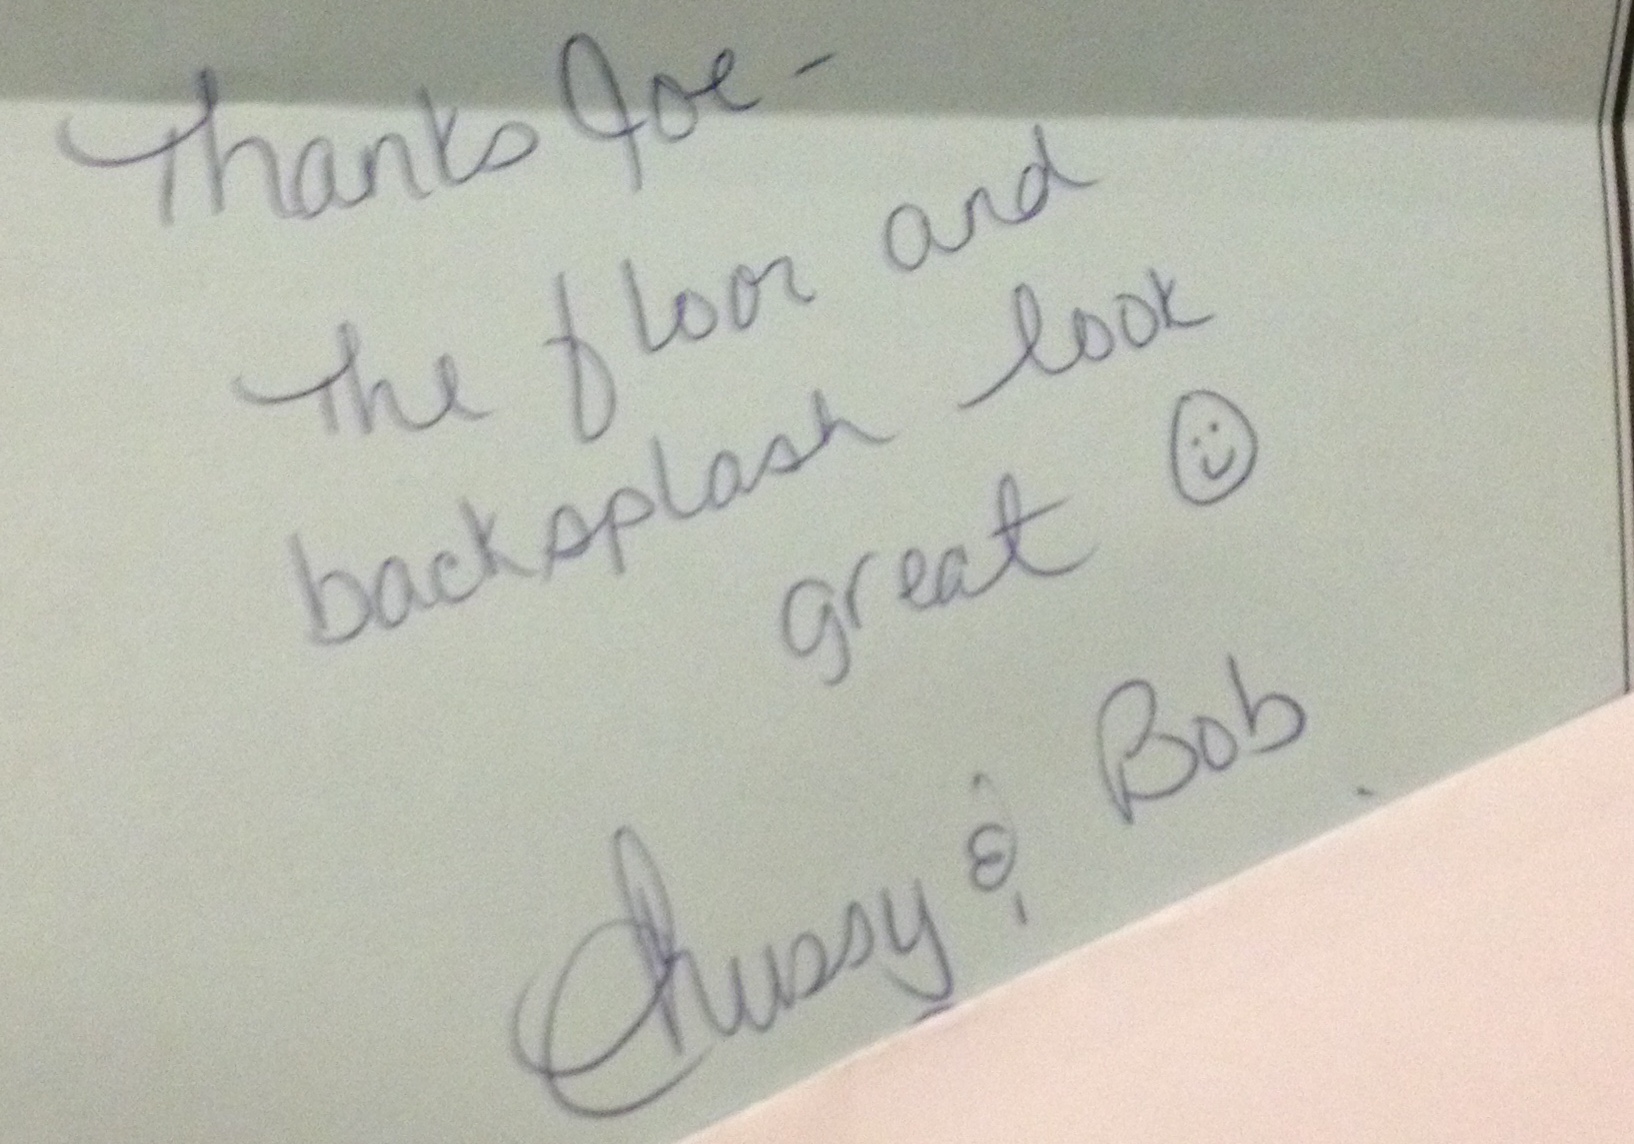 Thanks Joe -
The floor and
backsplash look
great ☺
Chrissy & Bob